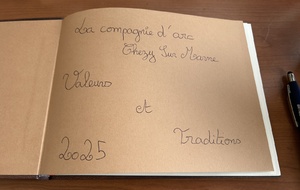 La compagnie d'arc
Chezy Sur Marne
Valeurs
et
Traditions
2025